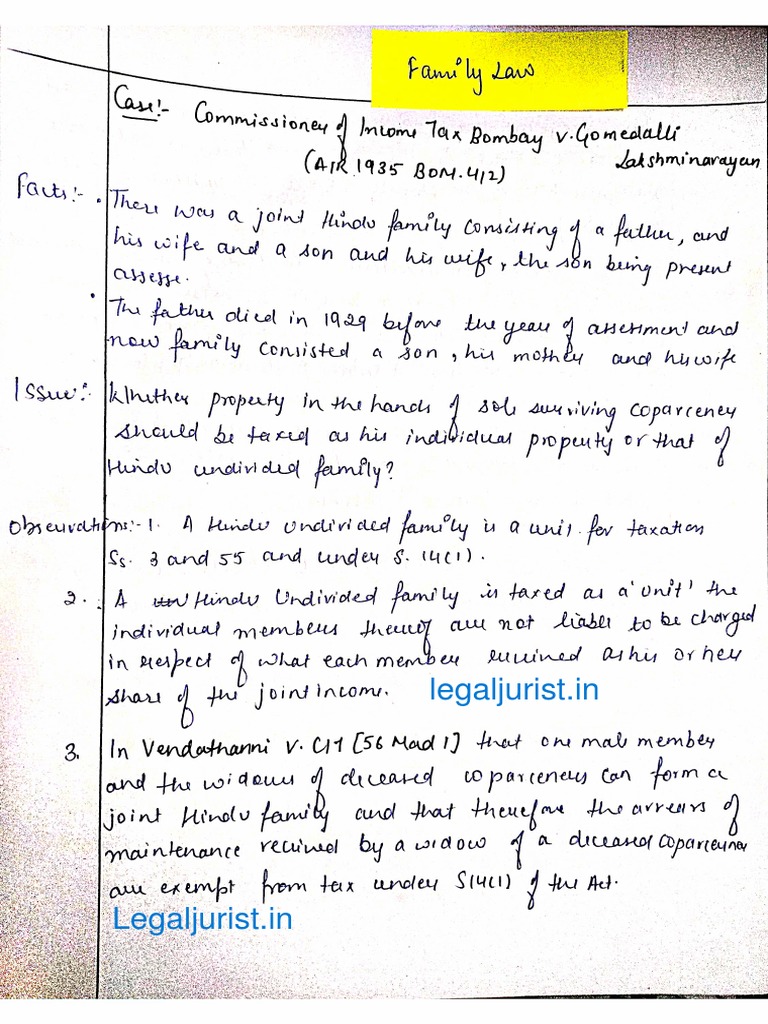 Family Law
Case:- Commissioner of Income Tax Bombay v. Gomedalli
Lakshminarayan
(AIR 1935 BOM. 412)
Facts:- • There was a joint Hindu family consisting of a father, and
his wife and a son and his wife, the son being present
assesse.
• The father died in 1929 before the year of assessment and
now family consisted a son, his mother and his wife
Issue:- Whether property in the hands of sole surviving coparcener
should be taxed as his individual property or that of
Hindu undivided family?
Observations:- 1. A Hindu undivided family is a unit for taxation
Ss. 3 and 55 and under S. 14(1).
2. A Hindu Undivided family is taxed as a 'unit' the
individual members thereof are not liable to be charged
in respect of what each member received as his or her
share of the joint income. legaljurist.in
3. In Vendathanni v. CIT [56 Mad 1] that one male member
and the widows of deceased coparceners can form a
joint Hindu family and that therefore the arrears of
maintenance received by a widow of a deceased coparcener
are exempt from tax under S14(1) of the Act.
Legaljurist.in